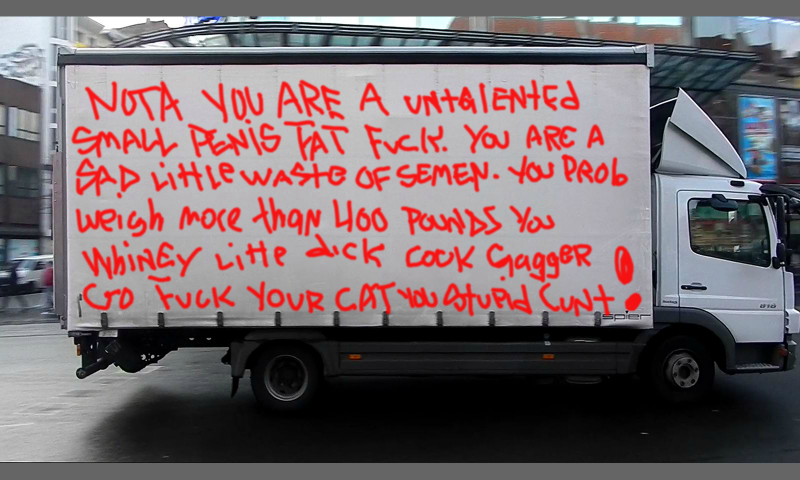 NOTA YOU ARE A untalented
SMALL PENIS FAT FUCK. YOU ARE A
SAD LittLe WASTE OF SEMEN. YOU PROB
weigh more than 400 POUNDS YOU
WhiNEY Litte dick COCK GaggER !
GO FUCK YOUR CAT YOU StuPid CUNT !
spier
616